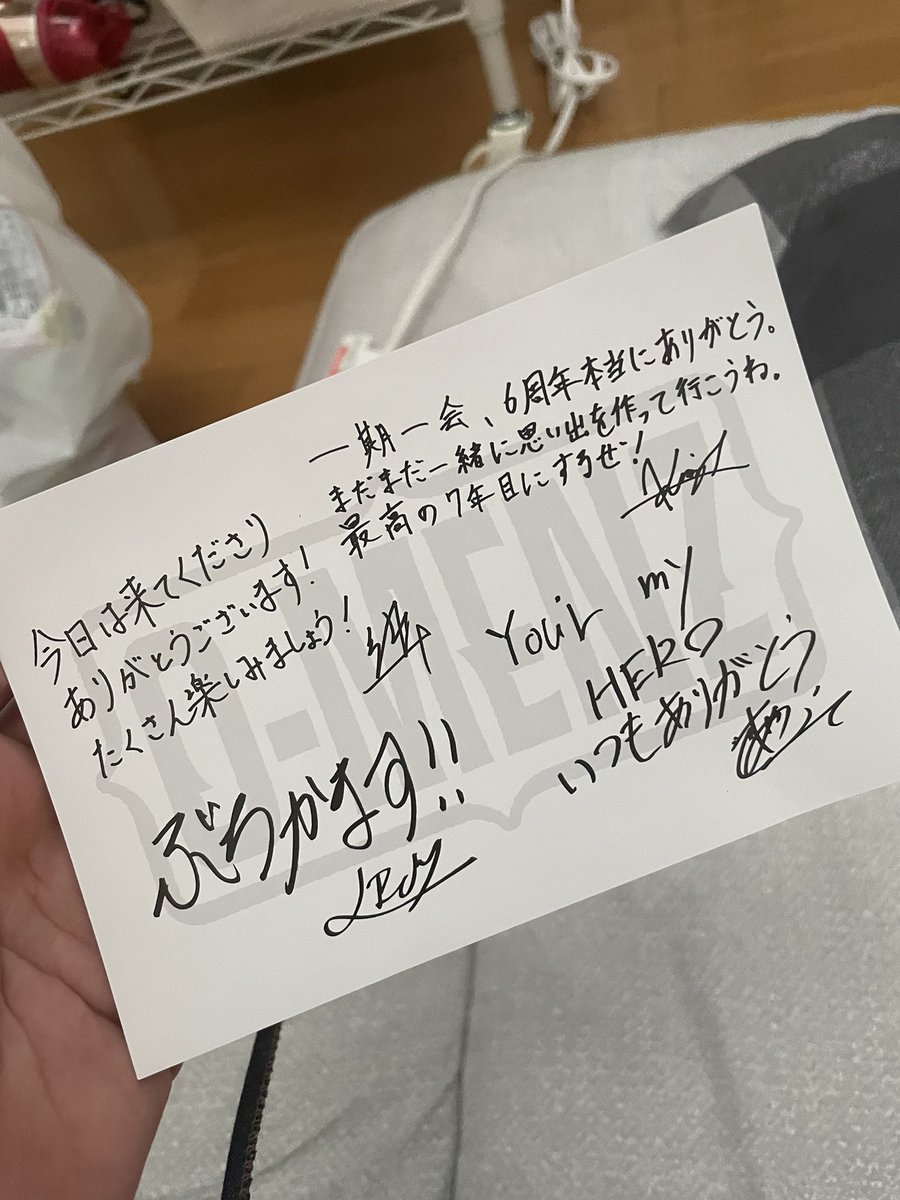 一期一会、6周年本当にありがとう。
まだまだ一緒に思い出を作って行こうね。
最高の7年目にするぜ!
今日は来てくださり
ありがとうございます!
たくさん楽しみましょう!
Your my
HERO
いつもありがとう
ぶちかます!!